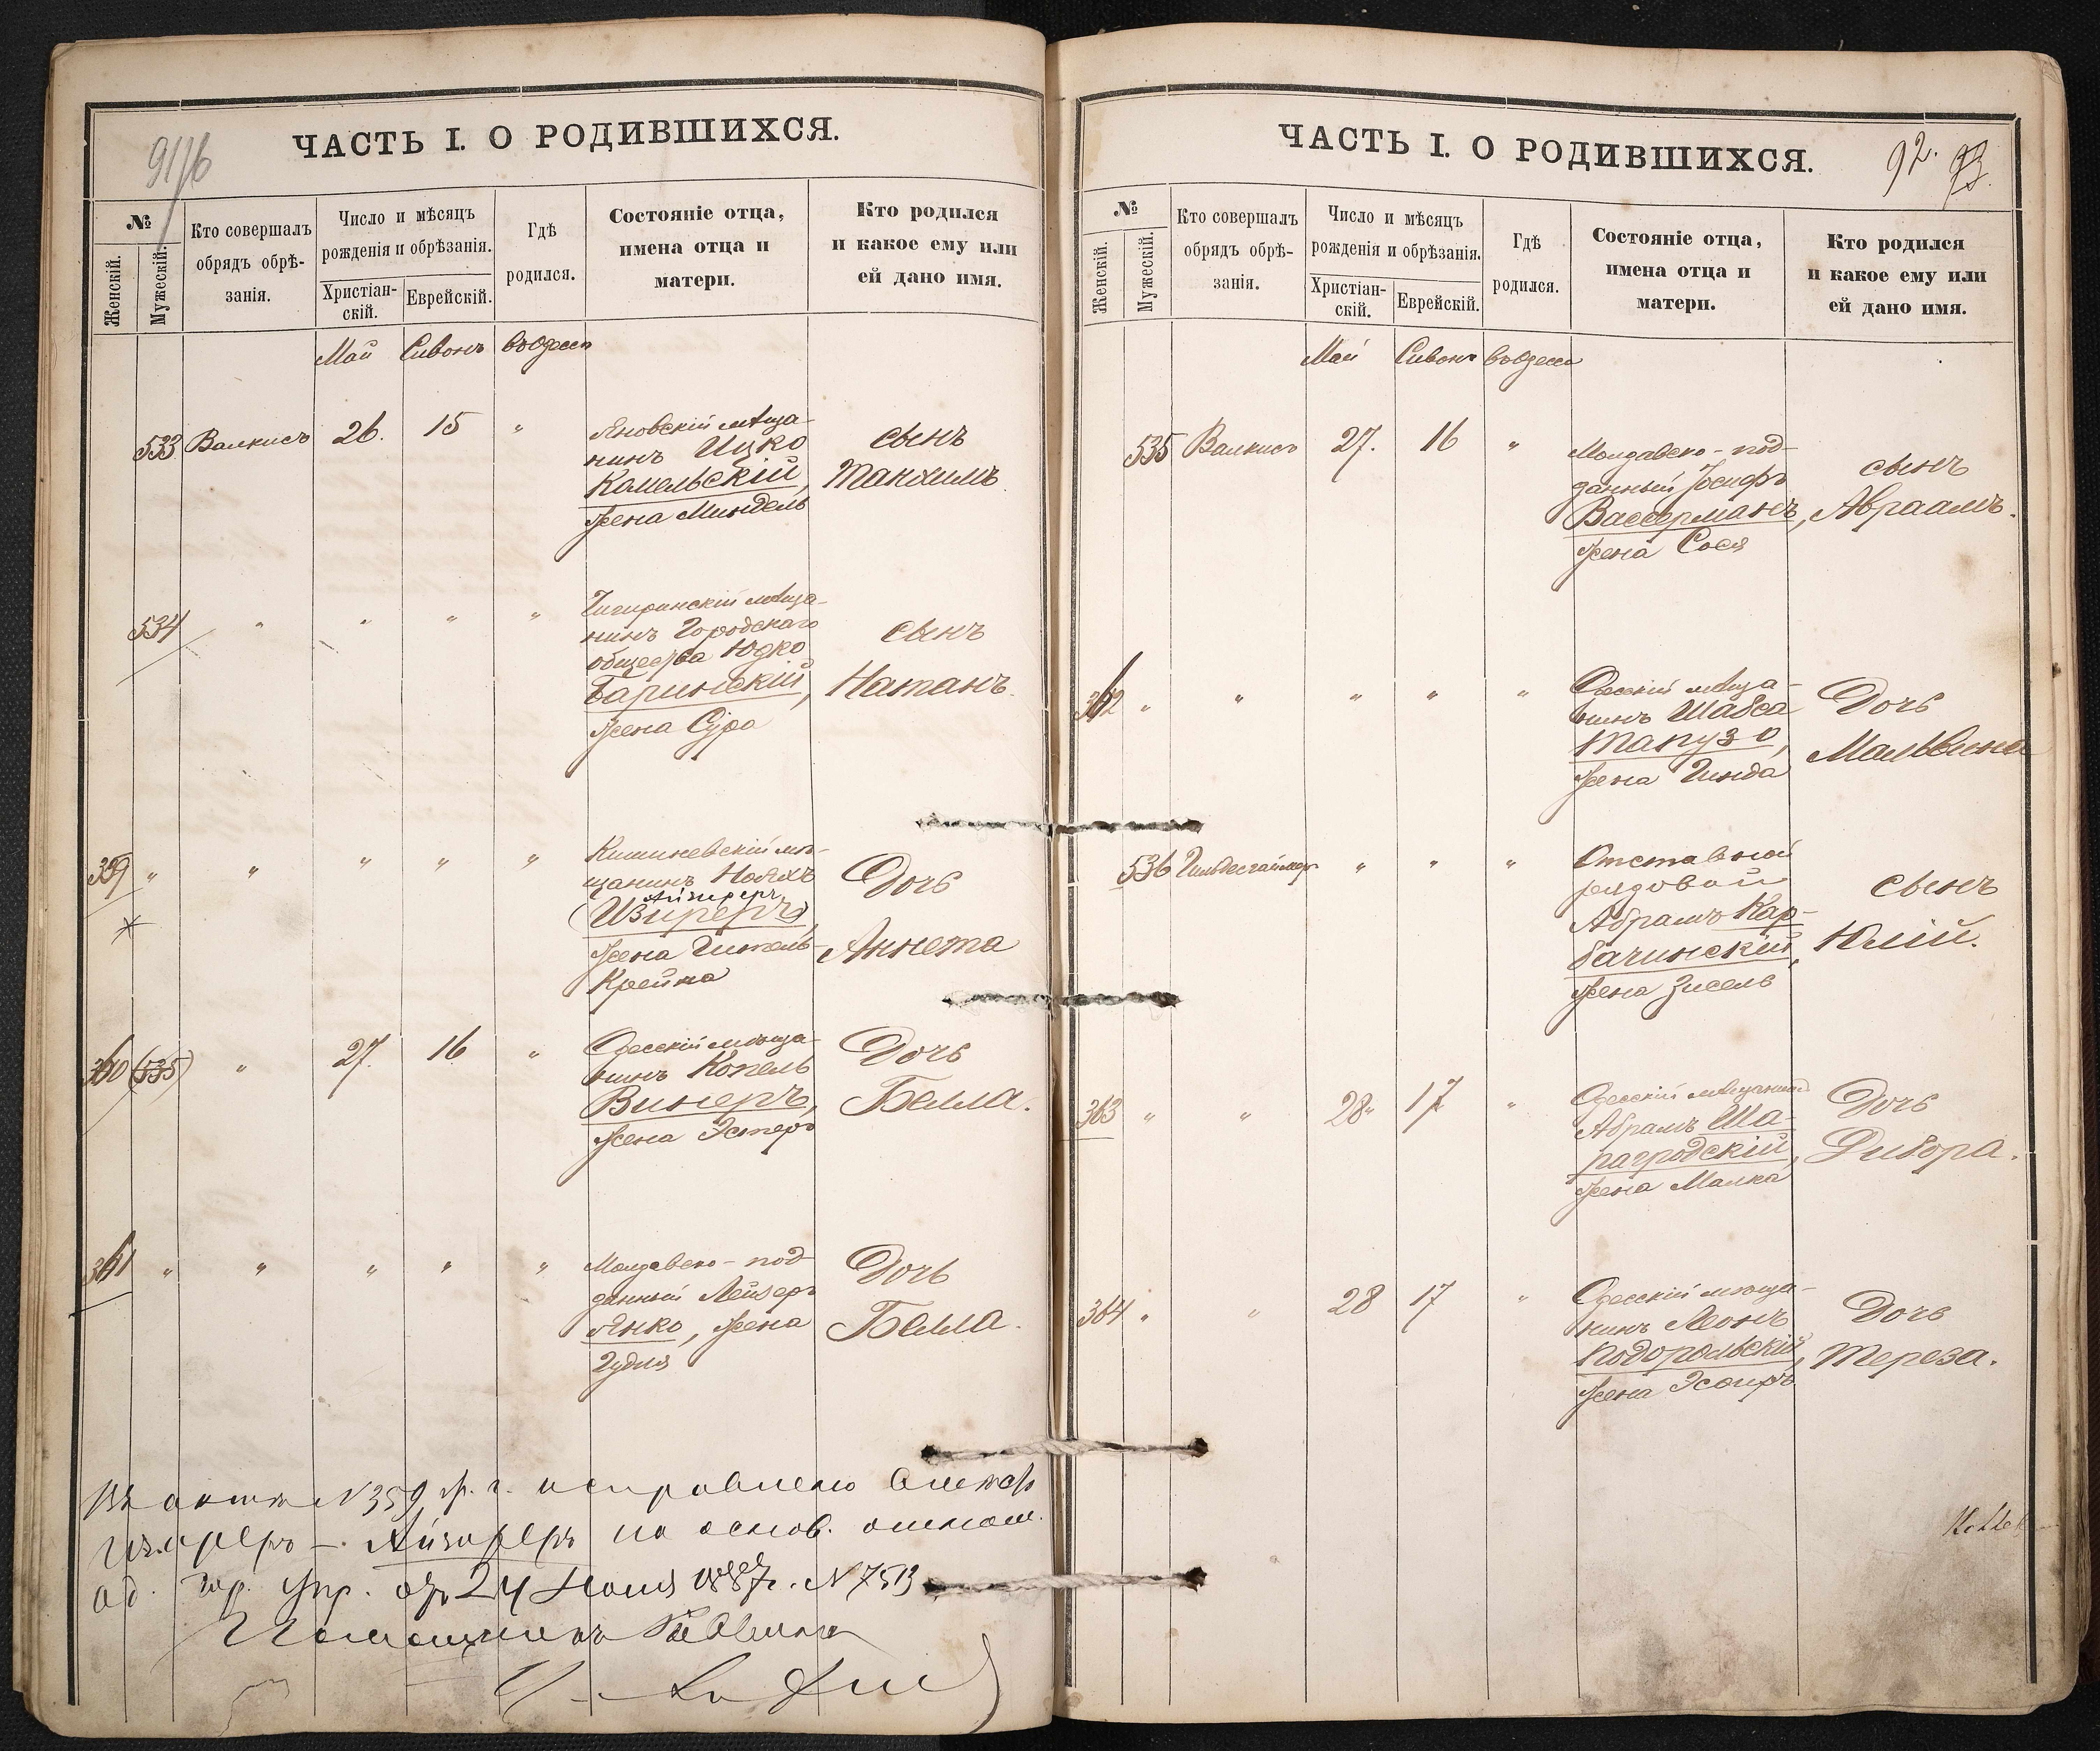 91/б
ЧАСТЬ I. О РОДИВШИХСЯ.
№
Женскій.
Мужескій.
Кто совершалъ
обрядъ обрѣ-
занія.
Число и мѣсяцъ
рожденія и обрѣзанія.
Христіан-
скій.
Еврейскій.
Гдѣ
родился.
Состояніе отца,
имена отца и
матери.
Кто родился
и какое ему или
ей дано имя.
Май Сивонъ въ Одессѣ
533 Валкисъ 26. 15 "
Яновскій мѣща-
нинъ Ицко
Комельскій,
жена Миндель
сынъ
Танхимъ
534 " " " "
Чигиринскій мѣща-
нинъ Городскаго
общества Юдко
Баринскій,
жена Сура
сынъ
Натанъ.
359 " " " " "
Кишиневскій мѣ-
щанинъ Нояхъ
Айзиреръ
(Изиреръ),
жена Гитель-
Крейна
Дочь
Аннета
360 (535) " 27. 16 "
Одесскій мѣща-
нинъ Копель
Винеръ,
жена Эстеръ
Дочь
Белла.
361 " " " " "
Молдавско-под-
данный Лейзеръ
Янко, жена
Гудля
Дочь
Белла.
Въ актѣ N 359, исправлено вмѣсто
Изиреръ - Айзиреръ на основ. отнош.
Од. Гор. Упр. отъ 24 Июня 1887 г. N 7513
92. 93.
ЧАСТЬ I. О РОДИВШИХСЯ.
№
Женскій.
Мужескій.
Кто совершалъ
обрядъ обрѣ-
занія.
Число и мѣсяцъ
рожденія и обрѣзанія.
Христіан-
скій.
Еврейскій.
Гдѣ
родился.
Состояніе отца,
имена отца и
матери.
Кто родился
и какое ему или
ей дано имя.
Май Сивонъ въ Одессѣ
535 Валкисъ 27. 16 "
Молдавско-под-
данный Іосифъ
Вассерманъ,
жена Сося
сынъ
Авраамъ.
362 " " " " "
Одесскій мѣща-
нинъ Шабса
Тапузо,
жена Гинда
Дочь
Мальвина
536 Гильдесгаймеръ " " "
Отставной
рядовой
Абрамъ Кар-
бачинскій,
жена Зисель
сынъ
Юлій.
363 " " 28 17 "
Одесскій мѣщанинъ
Абрамъ Ша-
рагродскій,
жена Малка
Дочь
Дибора.
364 " " 28 17 "
Одесскій мѣща-
нинъ Леонъ
Подорольскій,
жена Эсѳирь
Дочь
Тереза.